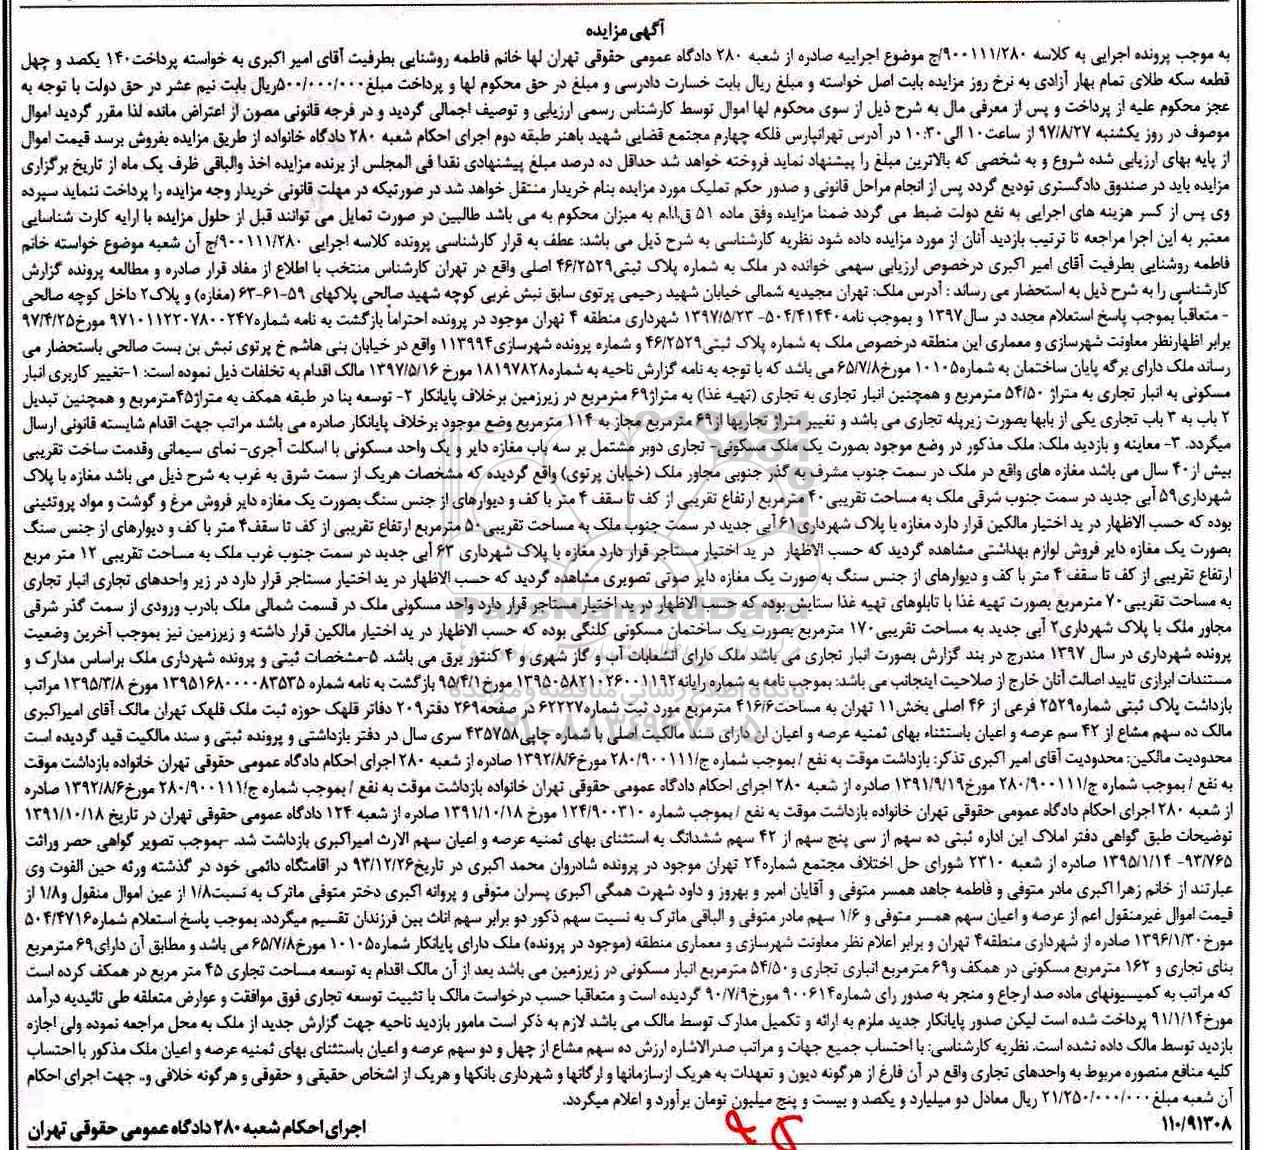 آگهی مزایده
به موجب پرونده اجرایی به کلاسه ۹۰۰۱۱۱/۲۸۰/ج موضوع اجراییه صادره از شعبه ۲۸۰ دادگاه عمومی حقوقی تهران لها خانم فاطمه روشنایی بطرفیت آقای امیر اکبری به خواسته پرداخت ۱۴۰ یکصد و چهل
قطعه سکه طلای تمام بهار آزادی به نرخ روز مزایده بابت اصل خواسته و مبلغ ریال بابت خسارت دادرسی و مبلغ در حق محکوم لها و پرداخت مبلغ ۵۰۰/۰۰۰/۰۰۰ریال بابت نیم عشر در حق دولت با توجه به
عجز محکوم علیه از پرداخت و پس از معرفی مال به شرح ذیل از سوی محکوم لها اموال توسط کارشناس رسمی ارزیابی و توصیف اجمالی گردید و در فرجه قانونی مصون از اعتراض مانده لذا مقرر گردید اموال
موصوف در روز یکشنبه ۹۷/۸/۲۷ از ساعت ۱۰ الی ۱۰:۳۰ در آدرس تهرانپارس فلکه چهارم مجتمع قضایی شهید باهنر طبقه دوم اجرای احکام شعبه ۲۸۰ دادگاه خانواده از طریق مزایده بفروش برسد قیمت اموال
از پایه بهای ارزیابی شده شروع و به شخصی که بالاترین مبلغ را پیشنهاد نماید فروخته خواهد شد حداقل ده درصد مبلغ پیشنهادی نقدا فی المجلس از برنده مزایده اخذ والباقی ظرف یک ماه از تاریخ برگزاری
مزایده باید در صندوق دادگستری تودیع گردد پس از انجام مراحل قانونی و صدور حکم تملیک مورد مزایده بنام خریدار منتقل خواهد شد در صورتیکه در مهلت قانونی خریدار وجه مزایده را پرداخت ننماید سپرده
وی پس از کسر هزینه های اجرایی به نفع دولت ضبط می گردد ضمنا مزایده وفق ماده ۵۱ ق.ا.ا.م به میزان محکوم به می باشد طالبین در صورت تمایل می توانند قبل از حلول مزایده با ارایه کارت شناسایی
معتبر به این اجرا مراجعه تا ترتیب بازدید آنان از مورد مزایده داده شود نظریه کارشناسی به شرح ذیل می باشد: عطف به قرار کارشناسی پرونده کلاسه اجرایی ۹۰۰۱۱۱/۲۸۰/ج آن شعبه موضوع خواسته خانم
فاطمه روشنایی بطرفیت آقای امیر اکبری درخصوص ارزیابی سهمی خوانده در ملک به شماره پلاک ثبتی ۴۶/۲۵۲۹ اصلی واقع در تهران کارشناس منتخب با اطلاع از مفاد قرار صادره و مطالعه پرونده گزارش
کارشناسی را به شرح ذیل به استحضار می رساند : آدرس ملک: تهران مجیدیه شمالی خیابان شهید رحیمی پرتوی سابق نبش غربی کوچه شهید صالحی پلاکهای ۵۹-۶۱-۶۳ (مغازه) و پلاک۲ داخل کوچه صالحی
- متعاقباً بموجب پاسخ استعلام مجدد در سال ۱۳۹۷ و بموجب نامه ۵۰۴/۴۱۴۴۰- ۱۳۹۷/۵/۲۳ شهرداری منطقه ۴ تهران موجود در پرونده احتراماً بازگشت به نامه شماره ۹۷۱۰۱۱۲۲۰۷۸۰۰۲۴۷ مورخ ۹۷/۴/۲۵
برابر اظهارنظر معاونت شهرسازی و معماری این منطقه درخصوص ملک به شماره پلاک ثبتی ۴۶/۲۵۲۹ و شماره پرونده شهرسازی ۱۱۳۹۹۴ واقع در خیابان بنی هاشم خ پرتوی نبش بن بست صالحی باستحضار می
رساند ملک دارای برگه پایان ساختمان به شماره ۱۰۱۰۵ مورخ ۶۵/۷/۸ می باشد که با توجه به نامه گزارش ناحیه به شماره ۱۸۱۹۷۸۲۸ مورخ ۱۳۹۷/۵/۱۶ مالک اقدام به تخلفات ذیل نموده است: ۱-تغییر کاربری انبار
مسکونی به انبار تجاری به متراژ ۵۴/۵۰ مترمربع و همچنین انبار تجاری به تجاری (تهیه غذا) به متراژ ۶۹ مترمربع در زیرزمین برخلاف پایانکار ۲- توسعه بنا در طبقه همکف به متراژ ۴۵مترمربع و همچنین تبدیل
۲ باب به ۳ باب تجاری یکی از بابها بصورت زیرپله تجاری می باشد و تغییر متراژ تجاریها از ۶۹ مترمربع مجاز به ۱۱۴ مترمربع وضع موجود برخلاف پایانکار صادره می باشد مراتب جهت اقدام شایسته قانونی ارسال
میگردد. ۳- معاینه و بازدید ملک: ملک مذکور در وضع موجود بصورت یک ملک مسکونی- تجاری دوبر مشتمل بر سه باب مغازه دایر و یک واحد مسکونی با اسکلت آجری- نمای سیمانی وقدمت ساخت تقریبی
بیش از ۴۰ سال می باشد مغازه های واقع در ملک در سمت جنوب مشرف به گذر جنوبی مجاور ملک (خیابان پرتوی) واقع گردیده که مشخصات هریک از سمت شرق به غرب به شرح ذیل می باشد مغازه با پلاک
شهرداری ۵۹ آبی جدید در سمت جنوب شرقی ملک به مساحت تقریبی ۴۰ مترمربع ارتفاع تقریبی از کف تا سقف ۴ متر با کف و دیوارهای از جنس سنگ بصورت یک مغازه دایر فروش مرغ و گوشت و مواد پروتئینی
بوده که حسب الاظهار در ید اختیار مالکین قرار دارد مغازه با پلاک شهرداری ۶۱ آبی جدید در سمت جنوب ملک به مساحت تقریبی ۵۰ مترمربع ارتفاع تقریبی از کف تا سقف ۴ متر با کف و دیوارهای از جنس سنگ
بصورت یک مغازه دایر فروش لوازم بهداشتی مشاهده گردید که حسب الاظهار در ید اختیار مستاجر قرار دارد مغازه با پلاک شهرداری ۶۳ آبی جدید در سمت جنوب غرب ملک به مساحت تقریبی ۱۲ متر مربع
ارتفاع تقریبی از کف تا سقف ۴ متر با کف و دیوارهای از جنس سنگ به صورت یک مغازه دایر صوتی تصویری مشاهده گردید که حسب الاظهار در ید اختیار مستاجر قرار دارد در زیر واحدهای تجاری انبار تجاری
به مساحت تقریبی ۷۰ مترمربع بصورت تهیه غذا با تابلوهای تهیه غذا ستایش بوده که حسب الاظهار در ید اختیار مستاجر قرار دارد واحد مسکونی ملک در قسمت شمالی ملک بادرب ورودی از سمت گذر شرقی
مجاور ملک با پلاک شهرداری ۲ آبی جدید به مساحت تقریبی ۱۷۰ مترمربع بصورت یک ساختمان مسکونی کلنگی بوده که حسب الاظهار در ید اختیار مالکین قرار داشته و زیرزمین نیز بموجب آخرین وضعیت
پرونده شهرداری در سال ۱۳۹۷ مندرج در بند گزارش بصورت انبار تجاری می باشد ملک دارای انشعابات آب و گاز شهری و ۴ کنتور برق می باشد. ۵-مشخصات ثبتی و پرونده شهرداری ملک براساس مدارک و
مستندات ابرازی تایید اصالت آنان خارج از صلاحیت اینجانب می باشد: بموجب نامه به شماره رایانه ۱۳۹۵۰۵۸۲۱۰۲۶۰۰۱۱۹۲ مورخ ۹۵/۴/۱ بازگشت به نامه شماره ۱۳۹۵۱۶۸۰۰۰۰۸۳۵۳۵ مورخ ۱۳۹۵/۳/۸ مراتب
بازداشت پلاک ثبتی شماره ۲۵۲۹ فرعی از ۴۶ اصلی بخش ۱۱ تهران به مساحت ۴۱۶/۶ مترمربع مورد ثبت شماره ۶۲۲۲۷ در صفحه ۲۶۹ دفتر ۲۰۹ دفاتر قلهک حوزه ثبت ملک قلهک تهران مالک آقای امیراکبری
مالک ده سهم مشاع از ۴۲ سم عرصه و اعیان باستثناء بهای ثمنیه عرصه و اعیان ان دارای سند مالکیت اصلی با شماره چاپی ۴۳۵۷۵۸ سری سال در دفتر بازداشتی و پرونده ثبتی و سند مالکیت قید گردیده است
محدودیت مالکین: محدودیت آقای امیر اکبری تذکر: بازداشت موقت به نفع / بموجب شماره ج/۲۸۰/۹۰۰۱۱۱ مورخ ۱۳۹۲/۸/۶ صادره از شعبه ۲۸۰ اجرای احکام دادگاه عمومی حقوقی تهران خانواده بازداشت موقت
به نفع / بموجب شماره ج/۲۸۰/۹۰۰۱۱۱ مورخ ۱۳۹۱/۹/۱۹ صادره از شعبه ۲۸۰ اجرای احکام دادگاه عمومی حقوقی تهران خانواده بازداشت موقت به نفع / بموجب شماره ج/۲۸۰/۹۰۰۱۱۱ مورخ ۱۳۹۲/۸/۶ صادره
از شعبه ۲۸۰ اجرای احکام دادگاه عمومی حقوقی تهران خانواده بازداشت موقت به نفع / بموجب شماره ۱۲۴/۹۰۰۳۱۰ مورخ ۱۳۹۱/۱۰/۱۸ صادره از شعبه ۱۲۴ دادگاه عمومی حقوقی تهران در تاریخ ۱۳۹۱/۱۰/۱۸
توضیحات طبق گواهی دفتر املاک این اداره ثبتی ده سهم از سی پنج سهم از ۴۲ سهم ششدانگ به استثنای بهای ثمنیه عرصه و اعیان سهم الارث امیراکبری بازداشت شد. -بموجب تصویر گواهی حصر وراثت
۹۳/۷۶۵- ۱۳۹۵/۱/۱۴ صادره از شعبه ۲۳۱۰ شورای حل اختلاف مجتمع شماره ۲۴ تهران موجود در پرونده شادروان محمد اکبری در تاریخ ۹۳/۱۲/۲۶ در اقامتگاه دائمی خود در گذشته ورثه حین الفوت وی
عبارتند از خانم زهرا اکبری مادر متوفی و فاطمه جاهد همسر متوفی و آقایان امیر و بهروز و داود شهرت همگی اکبری پسران متوفی و پروانه اکبری دختر متوفی ماترک به نسبت ۱/۸ از عین اموال منقول و ۱/۸ از
قیمت اموال غیرمنقول اعم از عرصه و اعیان سهم همسر متوفی و ۱/۶ سهم مادر متوفی و الباقی ماترک به نسبت سهم ذکور دو برابر سهم اناث بین فرزندان تقسیم میگردد. بموجب پاسخ استعلام شماره ۵۰۴/۴۷۱۶
مورخ ۱۳۹۶/۱/۳۰ صادره از شهرداری منطقه ۴ تهران و برابر اعلام نظر معاونت شهرسازی و معماری منطقه (موجود در پرونده) ملک دارای پایانکار شماره ۱۰۱۰۵ مورخ ۶۵/۷/۸ می باشد و مطابق آن دارای ۶۹ مترمربع
بنای تجاری و ۱۶۲ مترمربع مسکونی در همکف و ۶۹ مترمربع انباری تجاری و ۵۴/۵۰ مترمربع انبار مسکونی در زیرزمین می باشد بعد از آن مالک اقدام به توسعه مساحت تجاری ۴۵ متر مربع در همکف کرده است
که مراتب به کمیسیونهای ماده صد ارجاع و منجر به صدور رای شماره ۹۰۰۶۱۴ مورخ ۹۰/۷/۹ گردیده است و متعاقبا حسب درخواست مالک با تثبیت توسعه تجاری فوق موافقت و عوارض متعلقه طی تائیدیه درآمد
مورخ ۹۱/۱/۱۴ پرداخت شده است لیکن صدور پایانکار جدید ملزم به ارائه و تکمیل مدارک توسط مالک می باشد لازم به ذکر است مامور بازدید ناحیه جهت گزارش جدید از ملک به محل مراجعه نموده ولی اجازه
بازدید توسط مالک داده نشده است. نظریه کارشناسی: با احتساب جمیع جهات و مراتب صدرالاشاره ارزش ده سهم مشاع از چهل و دو سهم عرصه و اعیان باستثنای بهای ثمنیه عرصه و اعیان ملک مذکور با احتساب
کلیه منافع منصوره مربوط به واحدهای تجاری واقع در آن فارغ از هرگونه دیون و تعهدات به هریک ازسازمانها و ارگانها و شهرداری بانکها و هریک از اشخاص حقیقی و حقوقی و هرگونه خلافی و.. جهت اجرای احکام
آن شعبه مبلغ ۲۱/۲۵۰/۰۰۰/۰۰۰ ریال معادل دو میلیارد و یکصد و بیست و پنج میلیون تومان برآورد و اعلام میگردد.
۱۱۰/۹۱۳۰۸ اجرای احکام شعبه ۲۸۰ دادگاه عمومی حقوقی تهران
ParsNamadData
پایگاه اطلاع رسانی مناقصه و مزایده
۰۲۱-۸۸۳۴۹۶۷۰-۵